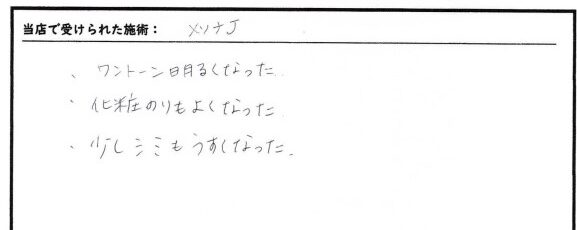 当店で受けられた施術： メソナJ
、ワントーン明るくなった.
・化粧のりもよくなった
・少しシミもうすくなった.